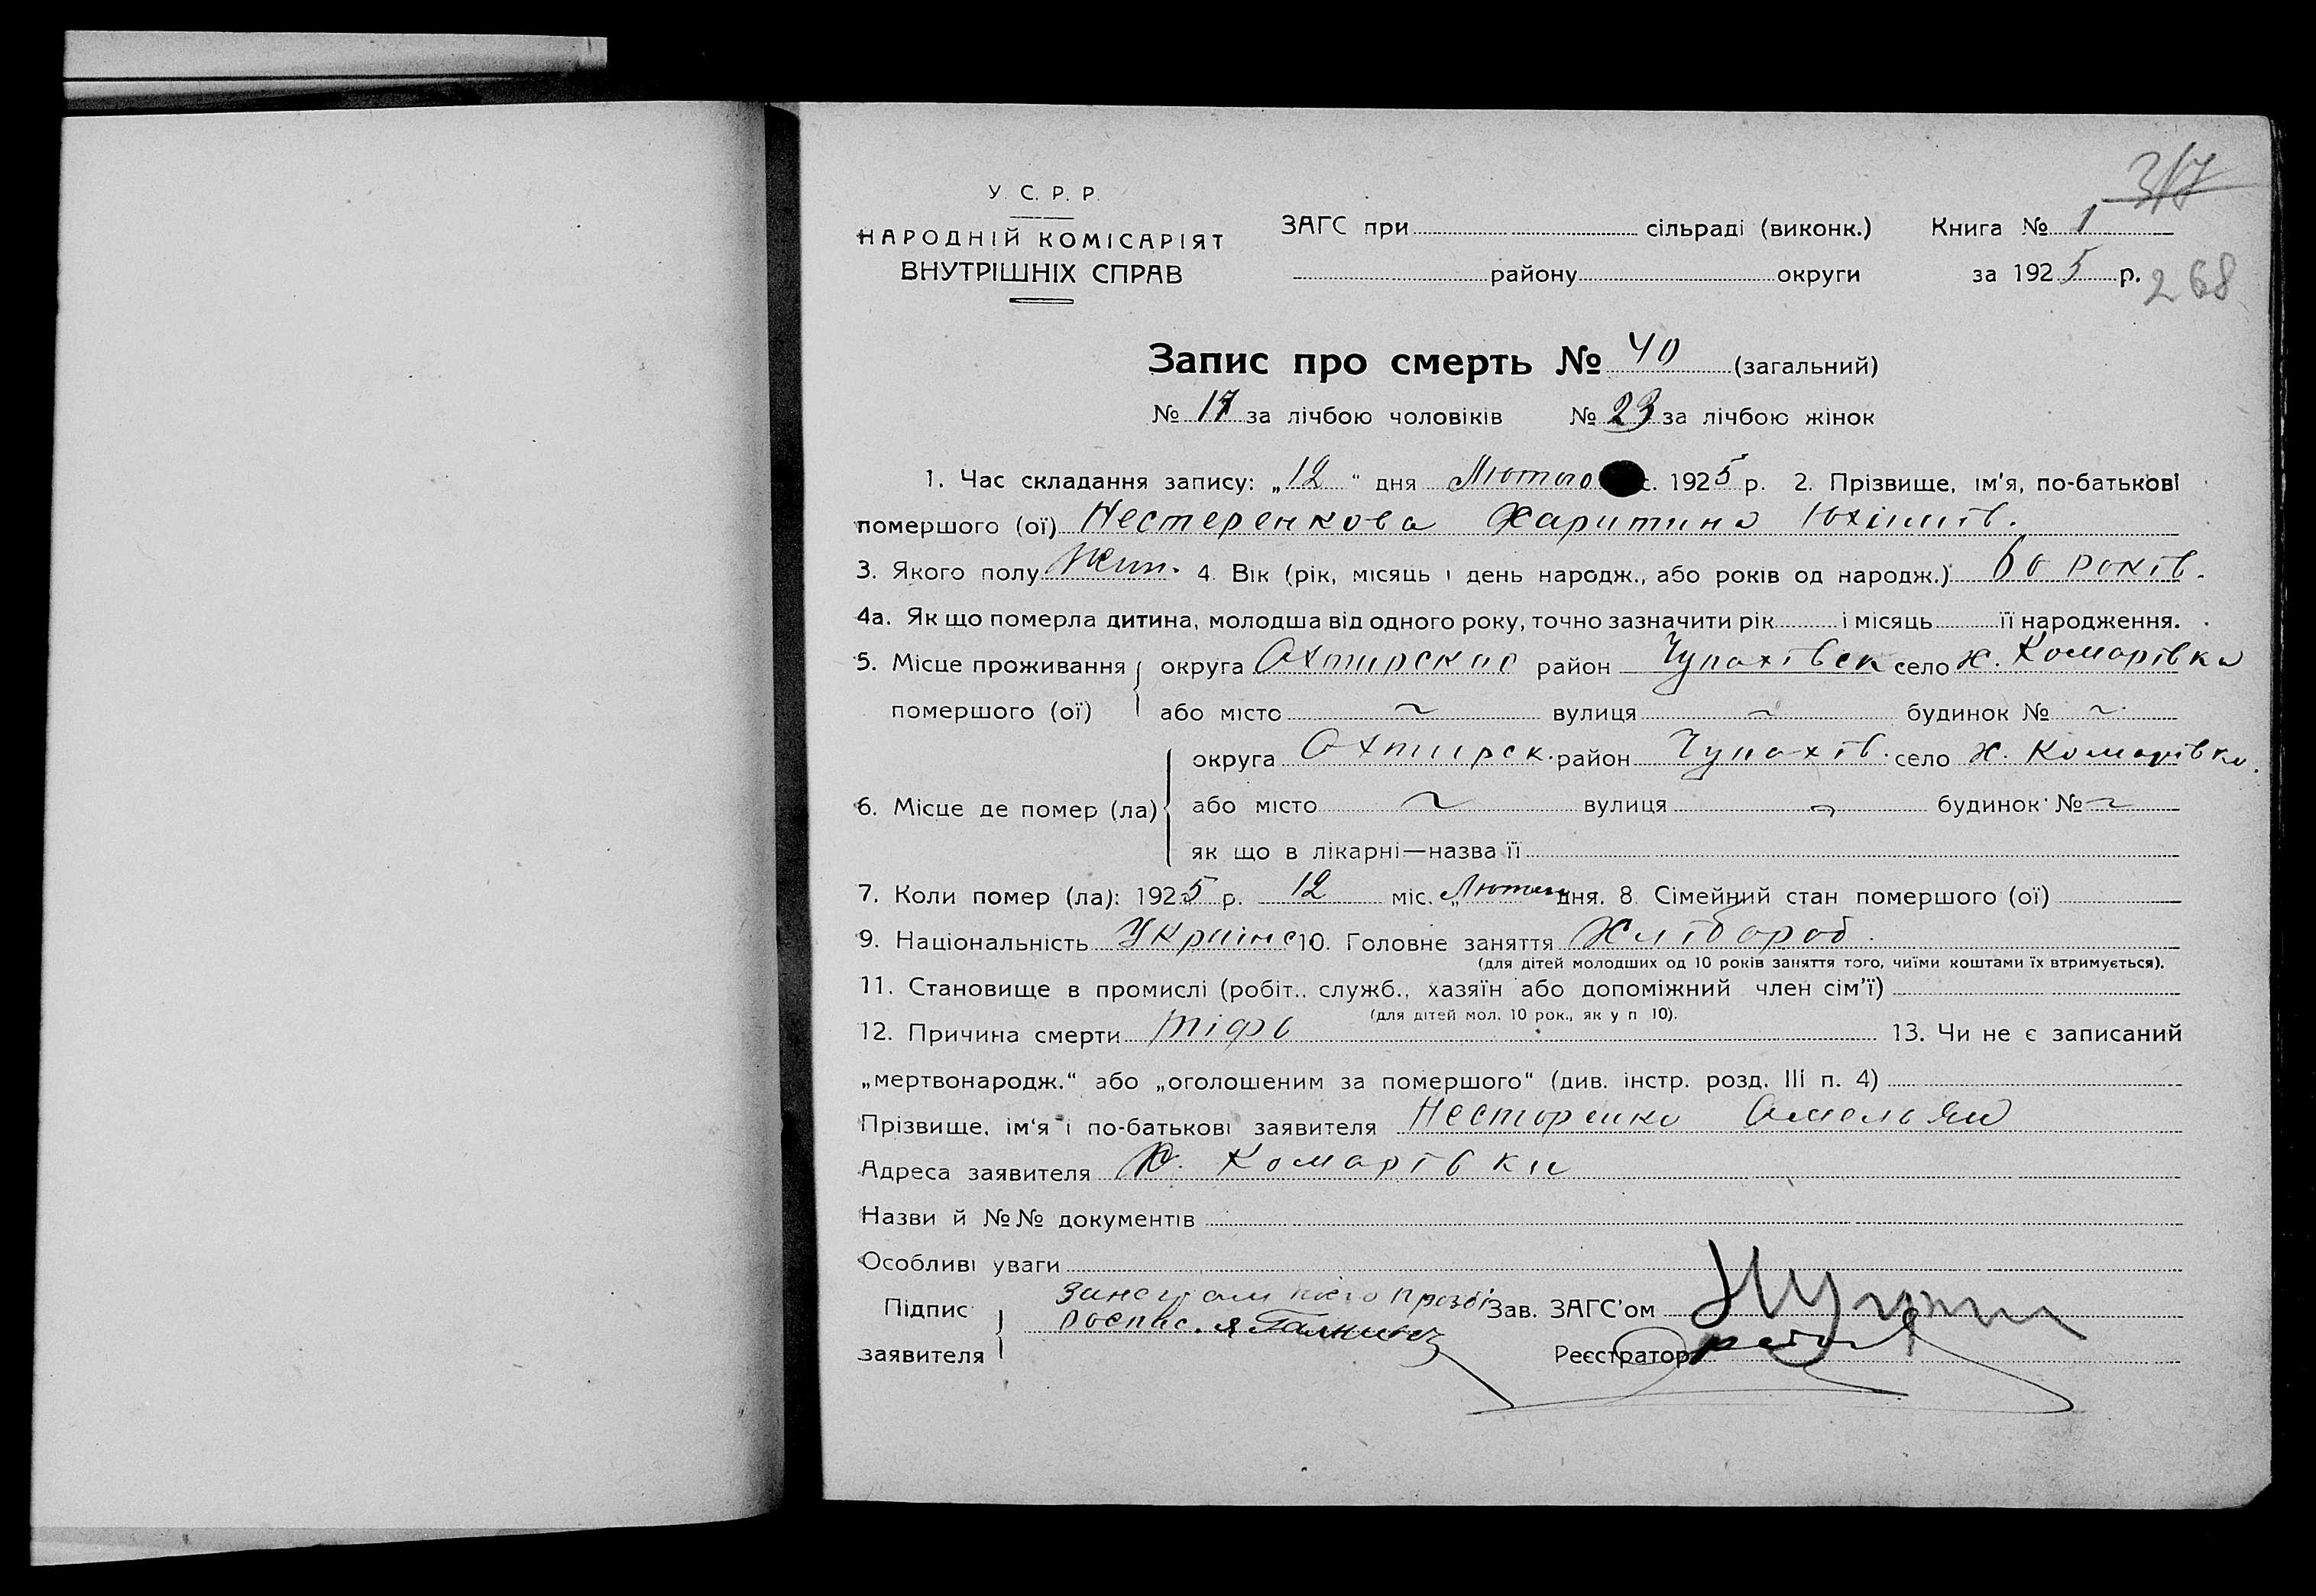 317
У. С. Р. Р.
НАРОДНІЙ КОМІСАРІЯТ
ВНУТРІШНІХ СПРАВ
ЗАГС при сільраді (виконк.) Книга № 1
району округи за 1925 р.
268
Запис про смерть № 40 (загальний)
№ 17 за лічбою чоловіків № 23 за лічбою жінок
1. Час складання запису: „12“ дня Лютого с. 1925 р. 2. Прізвище, ім'я, по-батькові
помершого (ої) Нестеренкова Харитина Юхімів.
3. Якого полу Жин. 4. Вік (рік, місяць і день народж., або років од народж.) 60 років.
4а. Як що померла дитина, молодша від одного року, точно зазначити рік і місяць її народження.
5. Місце проживання округа Охтирська район Чупахівськ село х. Комарівка
помершого (ої) або місто ~ вулиця ~ будинок № ~
округа Охтирск. район Чупахів. село х. Комарівка.
6. Місце де помер (ла) або місто ~ вулиця ~ будинок № ~
як що в лікарні—назва її
7. Коли помер (ла): 1925 р. 12 міс. „Лютого дня. 8. Сімейний стан помершого (ої)
9. Національність Українс 10. Головне заняття Хлібороб.
(для дітей молодших од 10 років заняття того, чиїми коштами їх втримується).
11. Становище в промислі (робіт., служб., хазяїн або допоміжний член сім'ї)
(для дітей мол. 10 рок., як у п 10).
12. Причина смерти тіфъ 13. Чи не є записаний
„мертвонародж.“ або „оголошеним за помершого“ (див. інстр. розд. III п. 4)
Прізвище, ім'я і по-батькові заявителя Нестеренко Омельян
Адреса заявителя х. Комарівка
Назви й №№ документів
Особливі уваги
Підпис його прозбі Зав. ЗАГС'ом
роспис. я
заявителя Реєстратор